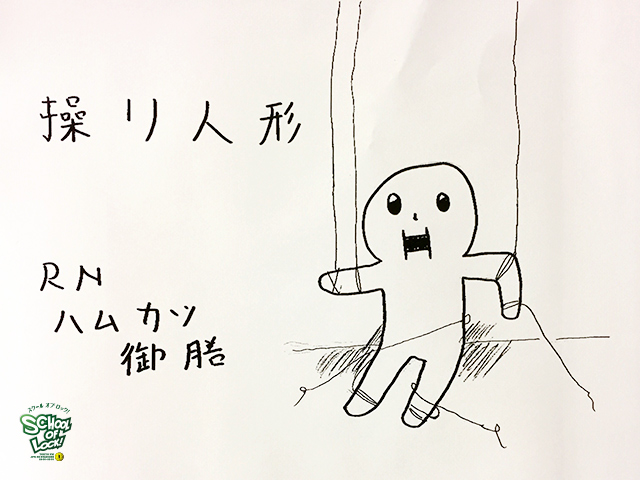 操り人形
RN
ハムカツ
御膳
スクール オブ ロック!
SCHOOL
OF
LOCK!